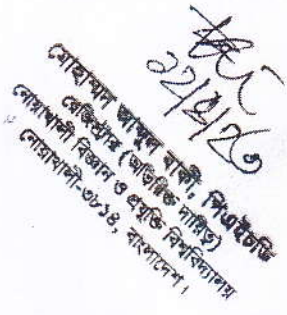 ২২/৫/২৩
মোহাম্মদ আব্দুল বাকী, পিএইচডি
রেজিস্ট্রার (অতিরিক্ত দায়িত্ব)
নোয়াখালী বিজ্ঞান ও প্রযুক্তি বিশ্ববিদ্যালয়
নোয়াখালী-৩৮১৪, বাংলাদেশ।